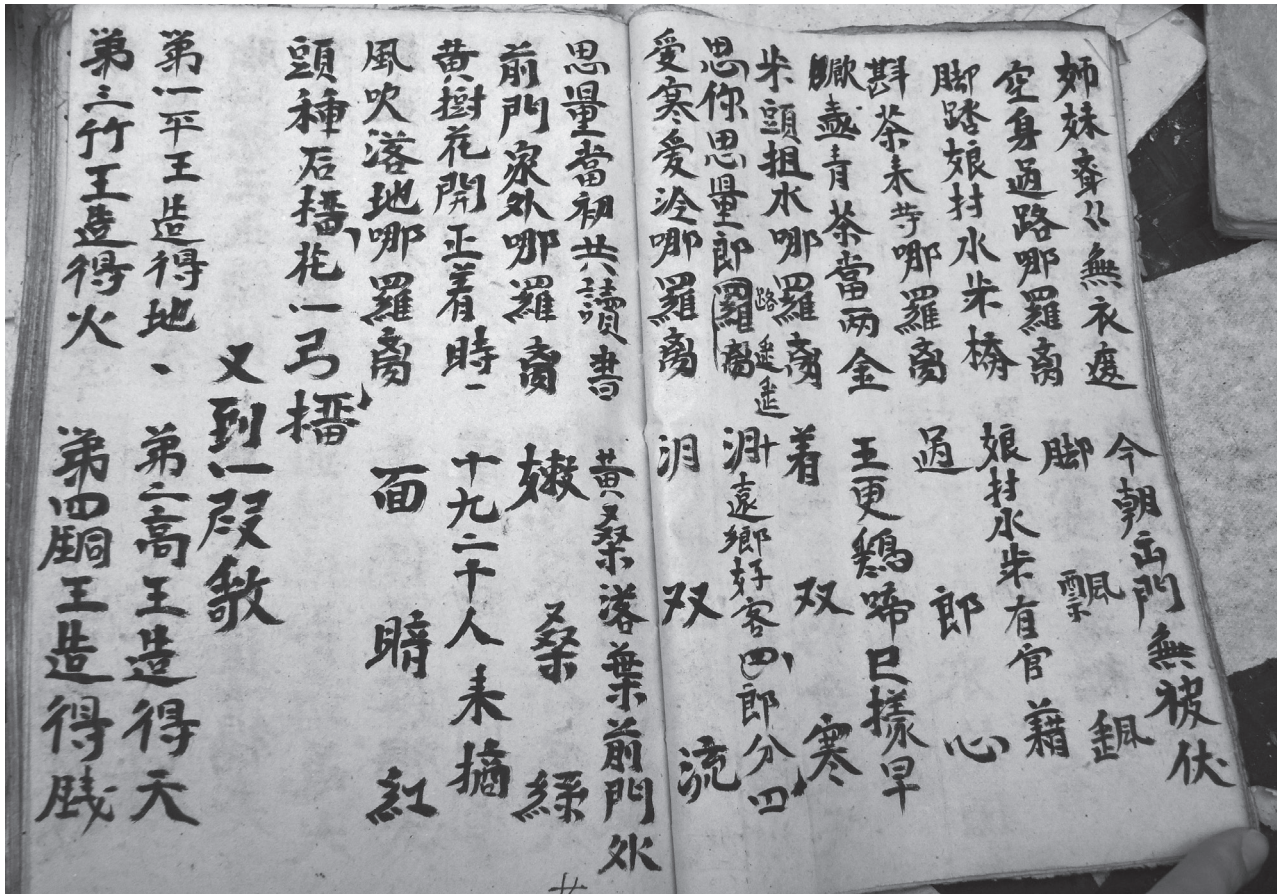 姉妹齊〻無衣度 今朝出門無被伏
空身过路哪羅离 脚 飄 飄
脚踏娘村水米橋 娘村水米有官藉
斟茶未苛哪羅离 过 郎 心
青茶當両金 五更鷄啼巳様早
米頭担水哪羅离 着 双 寒
路遥遥
思你思量郎羅离 泪遠鄉好客四郎分四
受寒爱冷哪羅离 泪 双 流
思量當初共讀書 黄桑落葉前門外
前門家外哪羅离 嫩 桑 緑
黄樹花開正着時 十九二十人未摘
風吹落地哪羅离 面 暗 紅
頭種后播花一弓播
又到一段教
第一平王造得地 第二高王造得天
第三竹王造得火 第四銅王造得賎